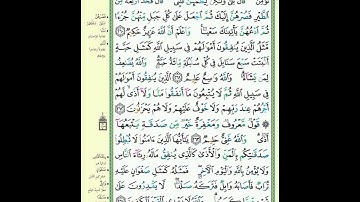 ٱلطَّيْرِ فَصُرْهُنَّ إِلَيْكَ ثُمَّ ٱجْعَلْ عَلَىٰ كُلِّ جَبَلٍ مِّنْهُنَّ جُزْءًا
ثُمَّ ٱدْعُهُنَّ يَأْتِينَكَ سَعْيًا وَٱعْلَمْ أَنَّ ٱللَّهَ عَزِيزٌ حَكِيمٌ ٢٦٠
مَّثَلُ ٱلَّذِينَ يُنفِقُونَ أَمْوَٰلَهُمْ فِى سَبِيلِ ٱللَّهِ كَمَثَلِ حَبَّةٍ
أَنۢبَتَتْ سَبْعَ سَنَابِلَ فِى كُلِّ سُنۢبُلَةٍ مِّا۟ئَةُ حَبَّةٍ وَٱللَّهُ يُضَٰعِفُ
لِمَن يَشَآءُ وَٱللَّهُ وَٰسِعٌ عَلِيمٌ ٢٦١ ٱلَّذِينَ يُنفِقُونَ أَمْوَٰلَهُمْ
فِى سَبِيلِ ٱللَّهِ ثُمَّ لَا يُتْبِعُونَ مَآ أَنفَقُوا۟ مَنًّا وَلَآ أَذًى لَّهُمْ
أَجْرُهُمْ عِندَ رَبِّهِمْ وَلَا خَوْفٌ عَلَيْهِمْ وَلَا هُمْ يَحْزَنُونَ ٢٦٢
قَوْلٌ مَّعْرُوفٌ وَمَغْفِرَةٌ خَيْرٌ مِّن صَدَقَةٍ يَتْبَعُهَآ
أَذًى وَٱللَّهُ غَنِىٌّ حَلِيمٌ ٢٦٣ يَٰٓأَيُّهَا ٱلَّذِينَ ءَامَنُوا۟ لَا تُبْطِلُوا۟
صَدَقَٰتِكُم بِٱلْمَنِّ وَٱلْأَذَىٰ كَٱلَّذِى يُنفِقُ مَالَهُۥ رِئَآءَ ٱلنَّاسِ
وَلَا يُؤْمِنُ بِٱللَّهِ وَٱلْيَوْمِ ٱلْءَاخِرِ فَمَثَلُهُۥ كَمَثَلِ صَفْوَانٍ عَلَيْهِ
تُرَابٌ فَأَصَابَهُۥ وَابِلٌ فَتَرَكَهُۥ صَلْدًا لَّا يَقْدِرُونَ عَلَىٰ